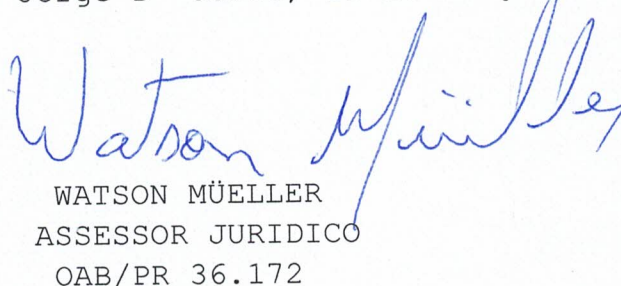 Watson Müller
WATSON MÜELLER
ASSESSOR JURIDICO
OAB/PR 36.172